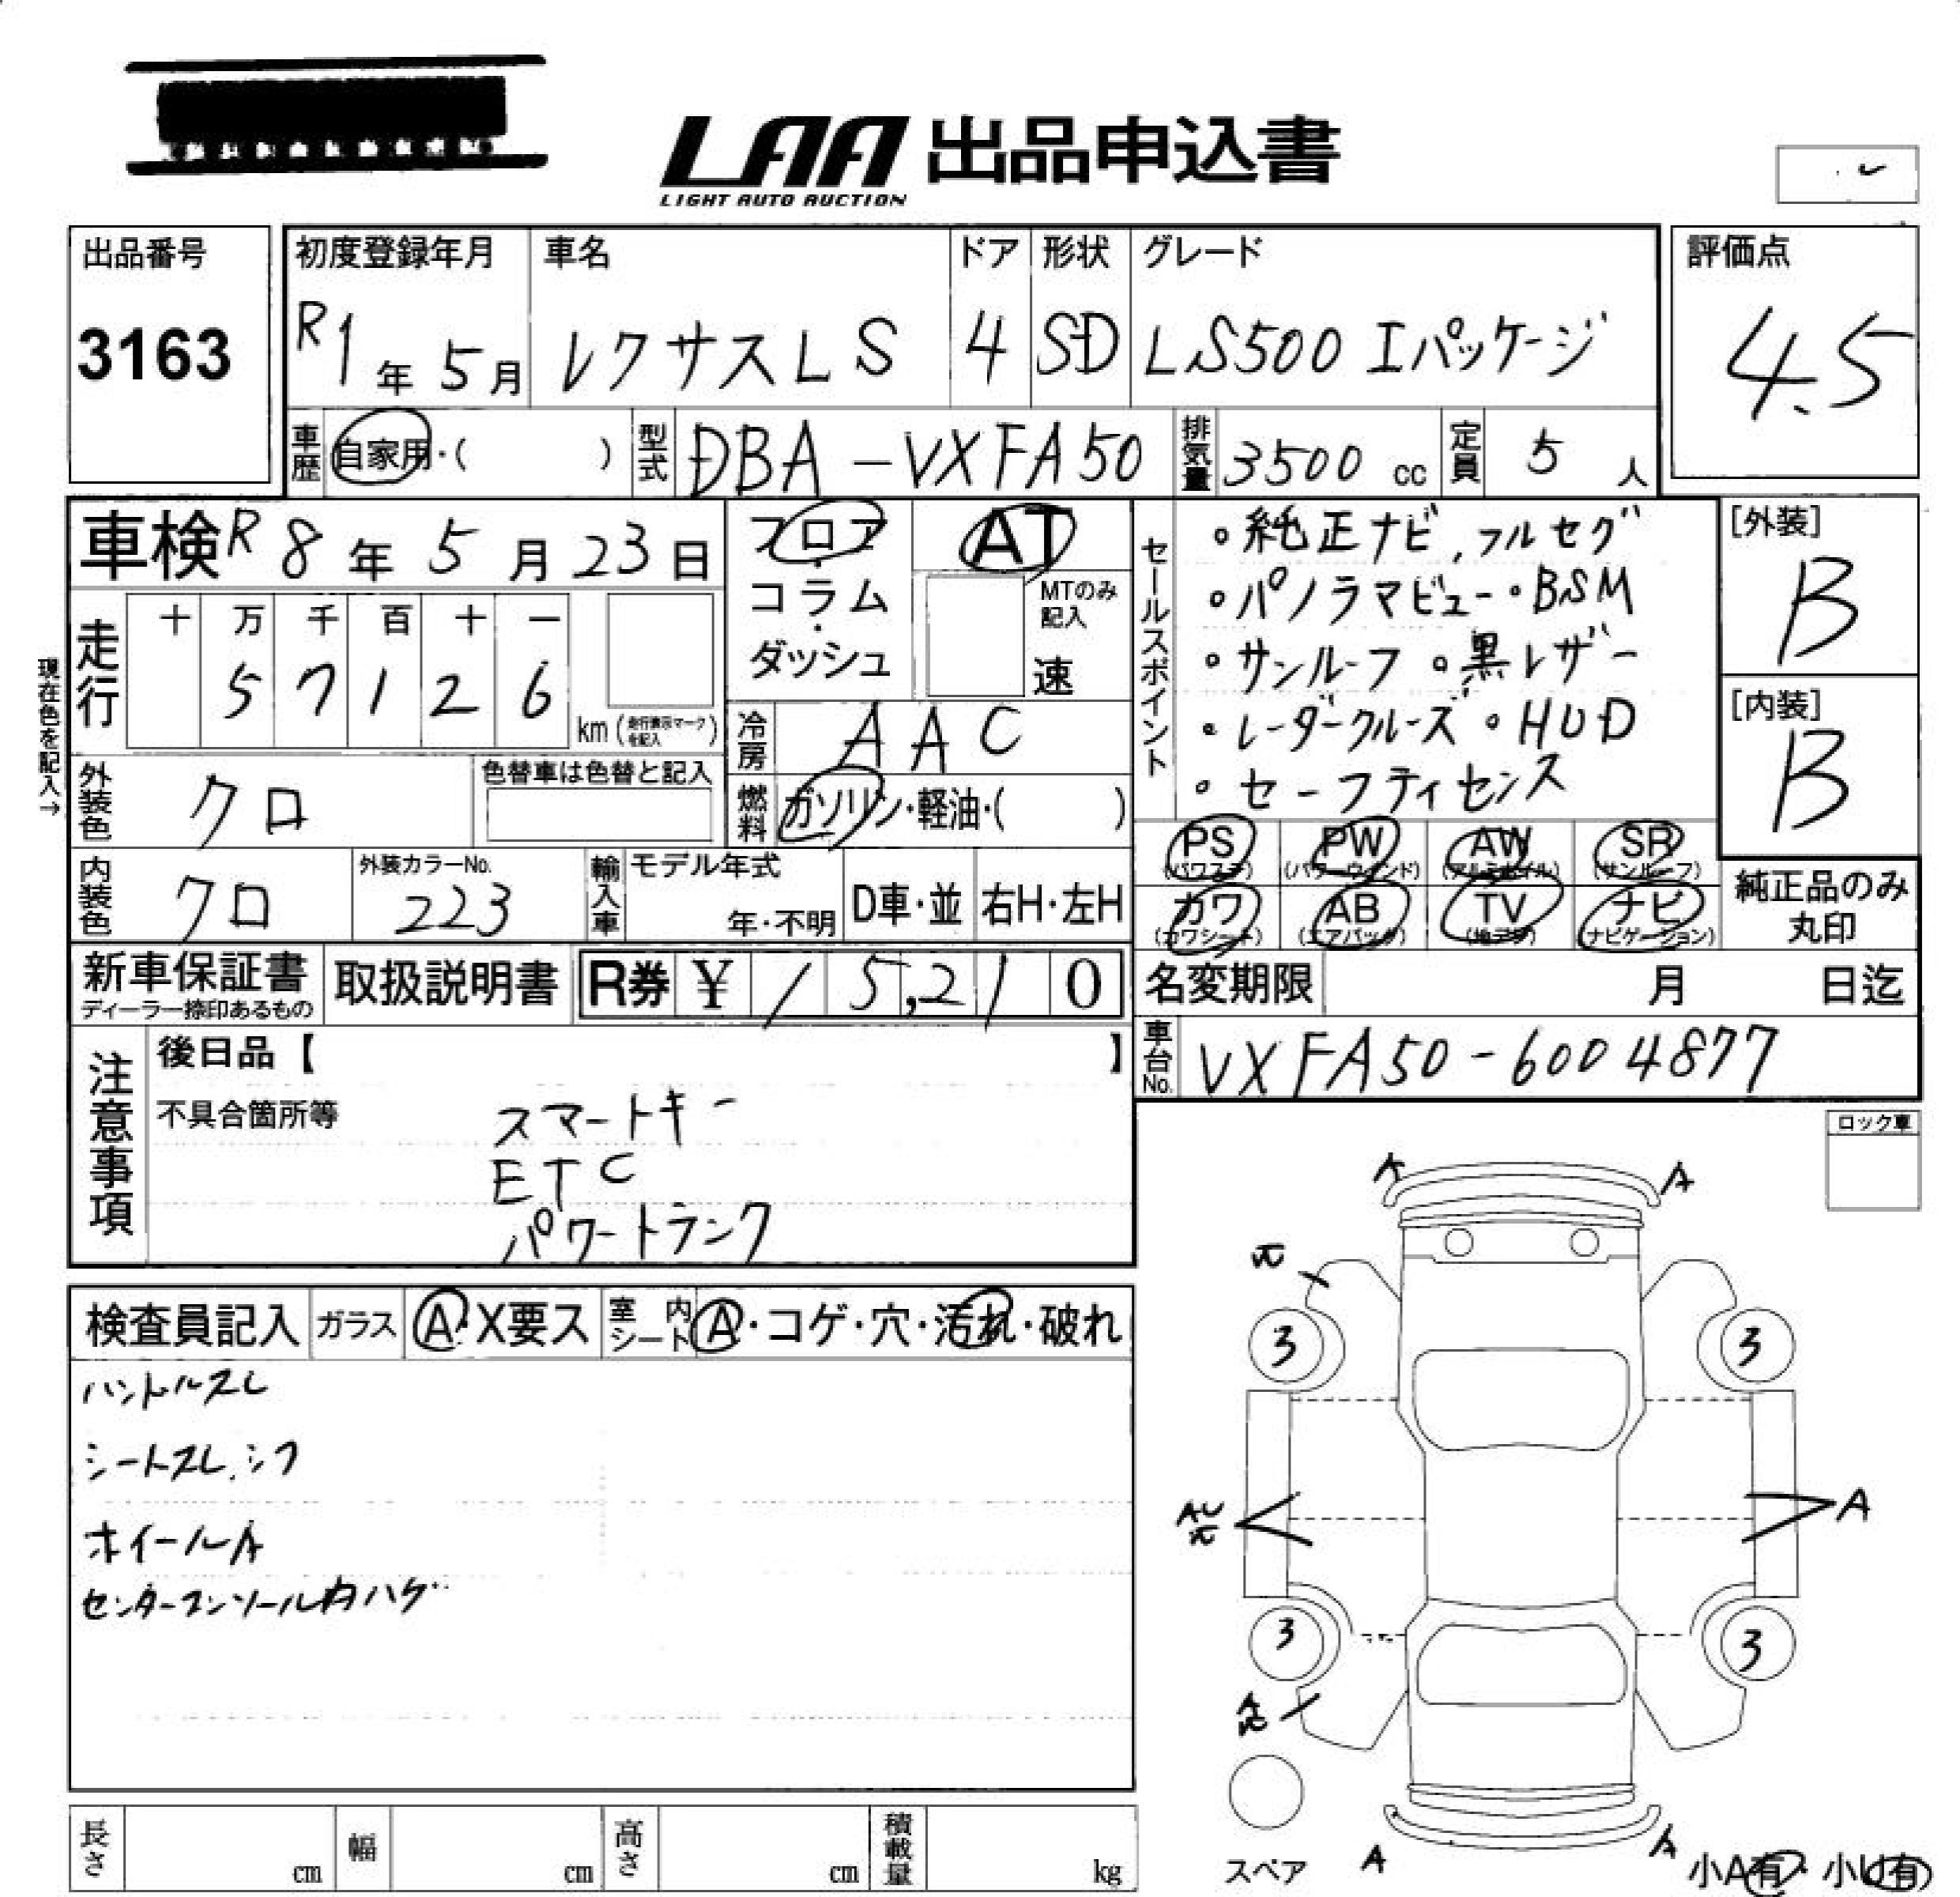 LAA 出品申込書
LIGHT AUTO AUCTION
出品番号
3163
初度登録年月
R1年5月
車名
レクサスLS
ドア
4
形状
SD
グレード
LS500 Iパッケージ
評価点
4.5
車歴 自家用・( )
型式 DBA-VXFA50
排気量 3500 cc
定員 5 人
車検 R8年5月23日
フロア・コラム・ダッシュ
AT
MTのみ記入
速
走行
十 万 千 百 十 一
5 7 1 2 6
km(走行表示マークを記入)
現在色を記入→
冷房 AAC
外装色 クロ
色替車は色替と記入
燃料 ガソリン・軽油・( )
内装色 クロ
外装カラーNo.
223
輸入車 モデル年式
年・不明
D車・並
右H・左H
セールスポイント
。純正ナビ,フルセグ
。パノラマビュー・BSM
。サンルーフ 。黒レザー
・レーダークルーズ 。HUD
・セーフティセンス
[外装]
B
[内装]
B
PS (パワステ)
PW (パワーウインド)
AW (アルミホイル)
SR (サンルーフ)
カワ (カワシート)
AB (エアバック)
TV (地デジ)
ナビ (ナビゲーション)
純正品のみ
丸印
新車保証書
ディーラー捺印あるもの
取扱説明書
R券 ¥ 15,210
名変期限 月 日迄
車台No. VXFA50-6004877
注意事項
後日品【 】
不具合箇所等
スマートキー
ETC
パワートランク
ロック車
検査員記入
ガラス A・X要ス
室内シート A・コゲ・穴・汚れ・破れ
ハンドルスレ
シートスレ.シワ
ホイールA
センターコンソールカハゲ
A A
3 3
AU
A
3 3
A
スペア
A A
小A有・小U有
長さ cm
幅 cm
高さ cm
積載量 kg